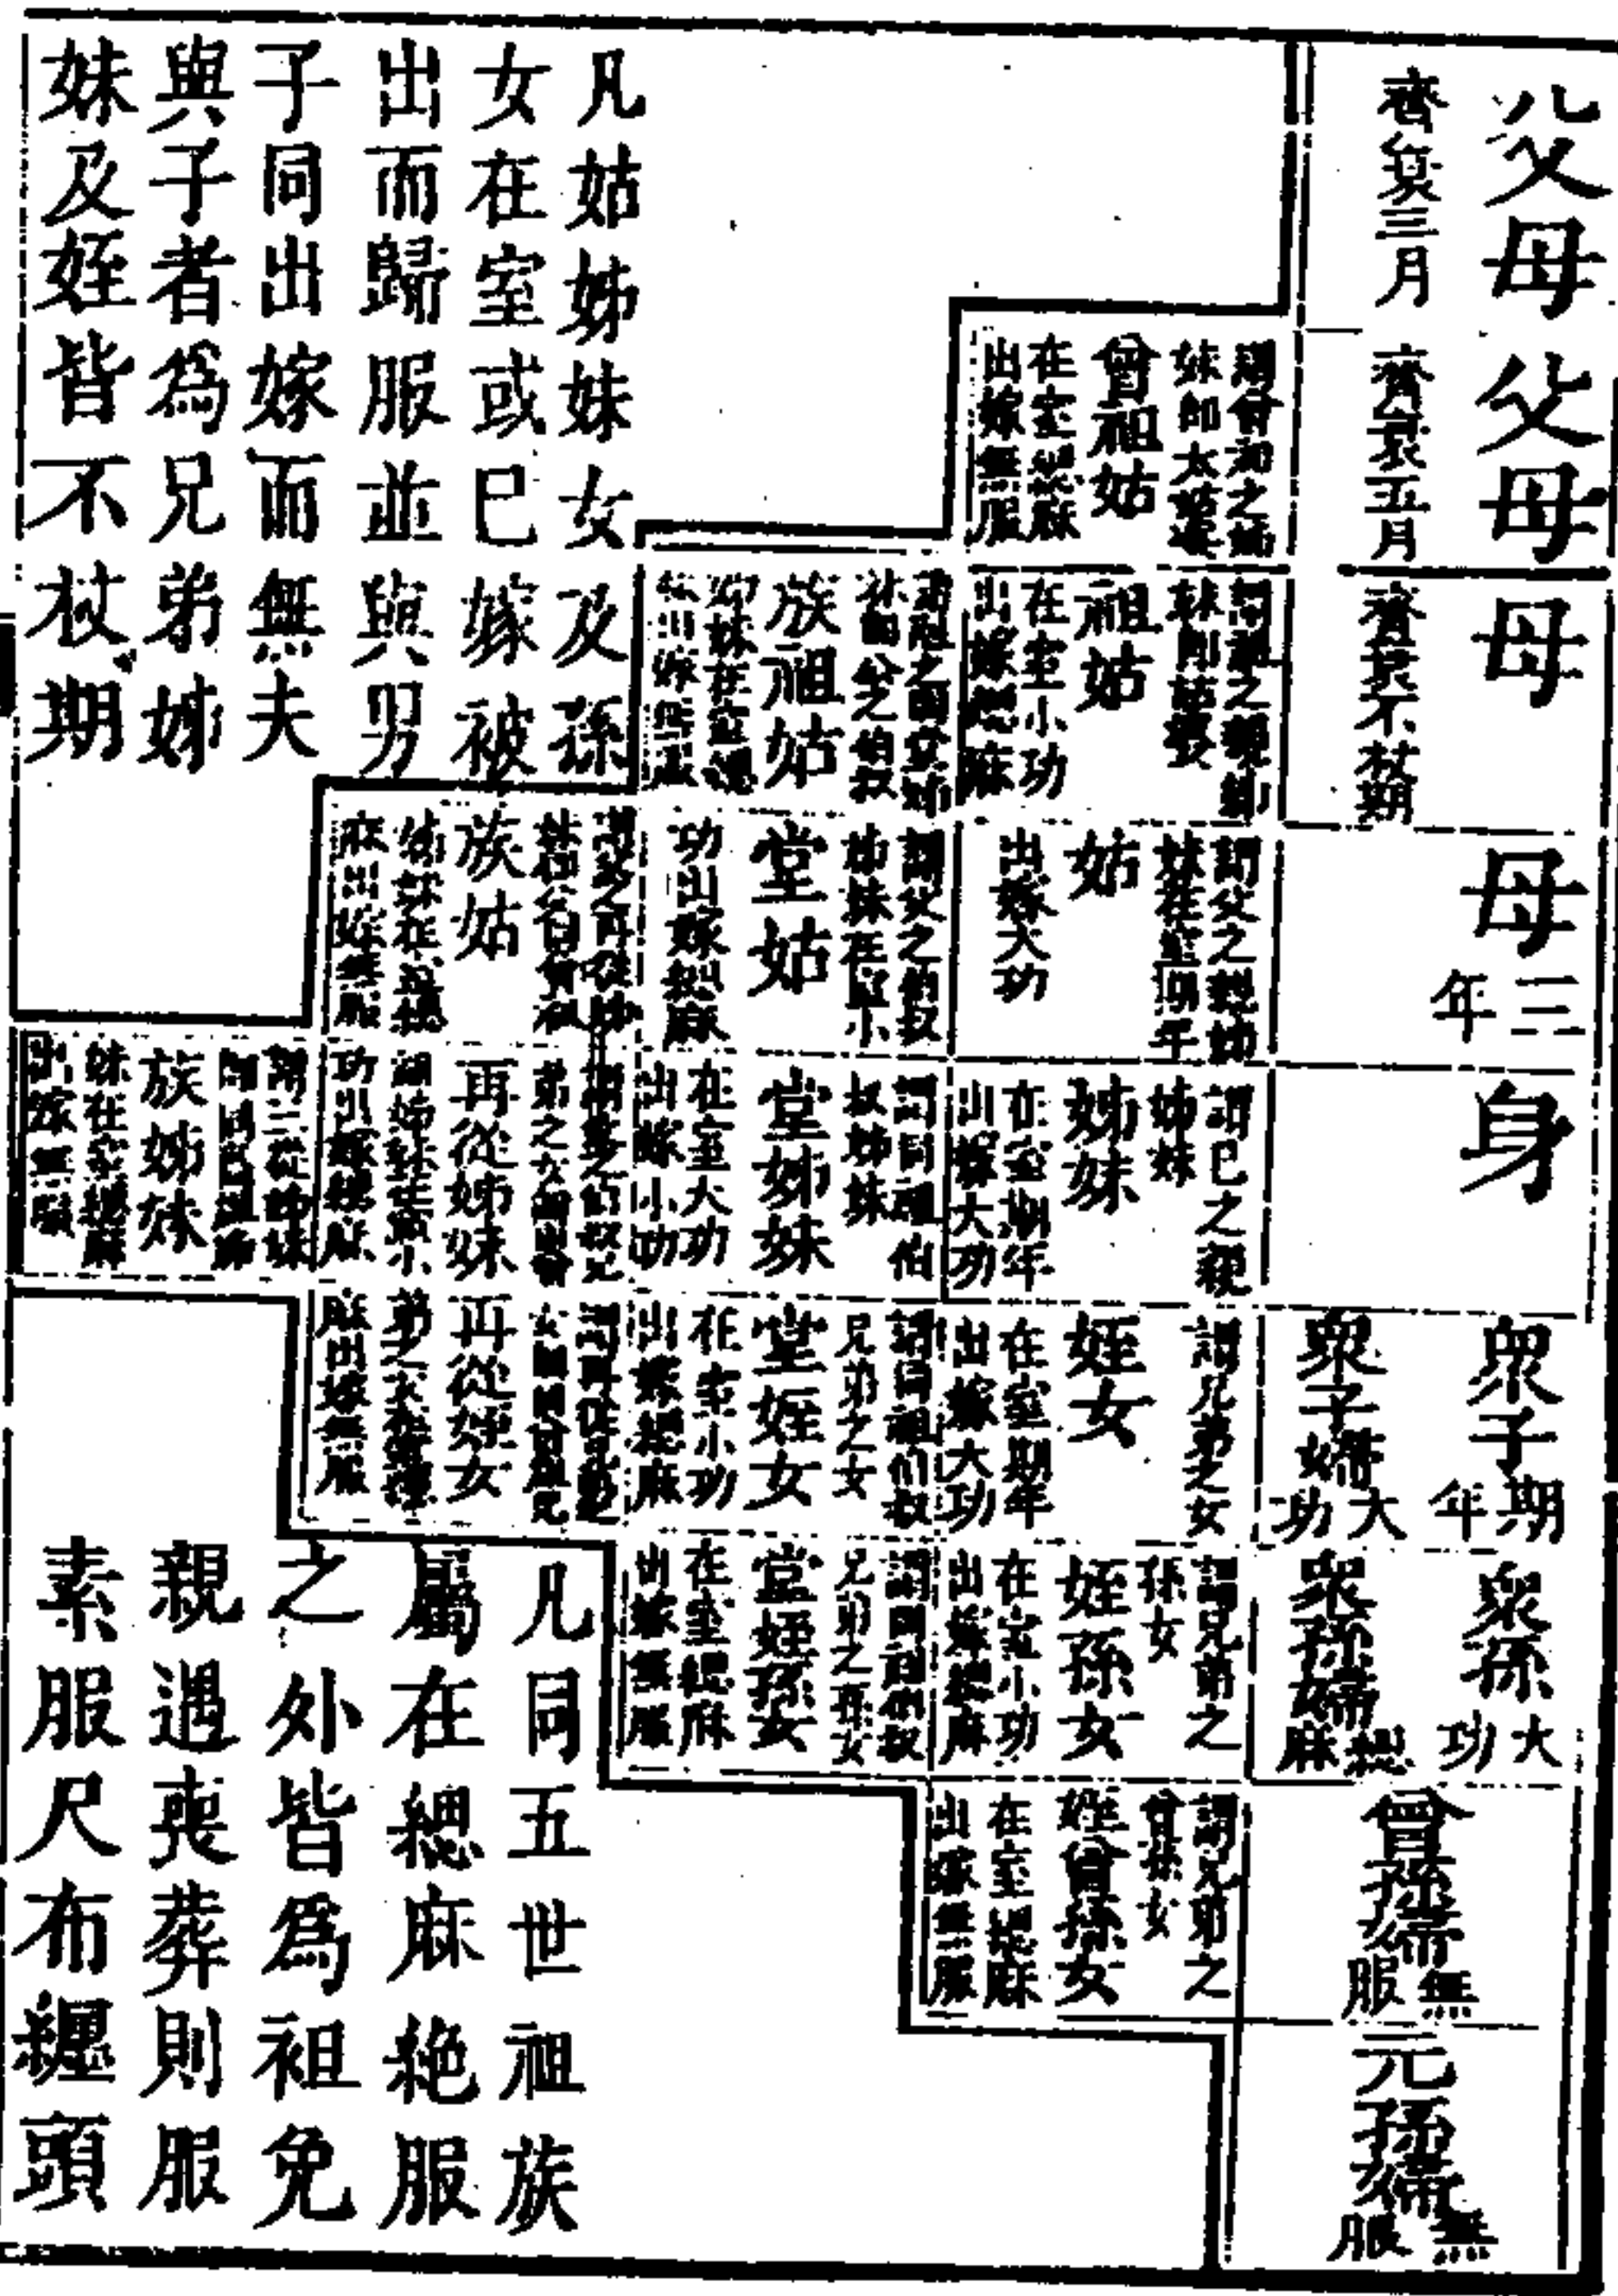 父母
齊衰三月
父母
齊衰五月
母
齊衰不杖期
母
三年
身
衆子
期年
衆子婦
大功
衆孫
大功
衆孫婦
緦麻
曾孫婦
無服
元孫婦
無服
曾祖姑
在室緦麻
出嫁無服
祖姑
在室小功
出嫁緦麻
謂父之親姊
妹在室期年
姑
出嫁大功
謂己之親
姊妹
姊妹
在室期年
出嫁大功
謂兄弟之女
姪女
在室期年
出嫁大功
謂兄弟之
孫女
姪孫女
在室小功
出嫁緦麻
謂兄弟之
曾孫女
姪曾孫女
在室緦麻
出嫁無服
族祖姑
謂父之伯叔
姊妹在室小
堂姑
功出嫁緦麻
謂同祖伯
叔姊妹
堂姊妹
在室大功
出嫁小功
謂同祖伯叔
兄弟之女
堂姪女
在室小功
出嫁緦麻
謂同祖伯叔
兄弟之孫女
堂姪孫女
在室緦麻
出嫁無服
族姑
麻出嫁無服
再從姊妹
功出嫁緦麻
再從姪女
麻出嫁無服
族姊妹
妹在室緦麻
出嫁無服
凡姑姊妹女及孫
女在室或巳嫁被
出而歸服並與男
子同出嫁而無夫
與子者爲兄弟姊
妹及姪皆不杖期
凡同五世祖族
屬在緦麻絶服
之外皆爲袒免
親遇喪葬則服
素服尺布纏頭